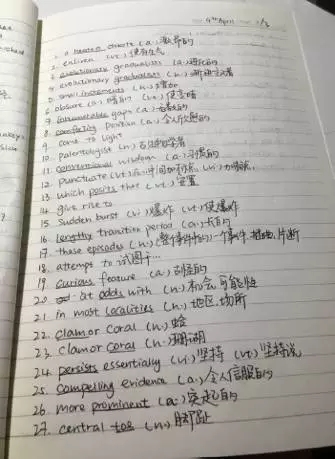 4th April
1. a heated debate (a.) 激烈的
2. enliven (vt.) 使有生气
3. evolutionary gradualists (a.) 进化的
4. evolutionary gradualists (n.) 渐进主义者
5. small increments (n.)
6. obscure (a.) 暗的 (vt.) 使含糊
7. gaps (a.)
8. comforting position (a.) 令人欣慰的
9. come to light
10. paleontologist (n.) 古生物学者
11. conventional wisdom (a.) 习惯的
12. punctuate (vt.) 在…中间加标点 (vi.) 加标点
13. which posits that (vt.) 安置
14. give rise to
15. Sudden burst (vi.) 爆炸 (vt.) 使爆炸
16. lengthy transition period (a.) 长的
17. these episodes (n.) (整个事件中的) 一个事件, 插曲, 片断
18. attempts to 试图于…
19. Curious feature (a.) 古怪的
20. at odds with (n.) 机会 可能性
21. in most localities (n.) 地区, 场所
22. clam or coral (n.) 蛤
23. clam or coral (n.) 珊瑚
24. persists essentially (vi.) 坚持 (vt.) 坚持说
25. Compelling evidence (a.) 令人信服的
26. more prominent (a.) 突起的
27. central toe (n.) 脚趾